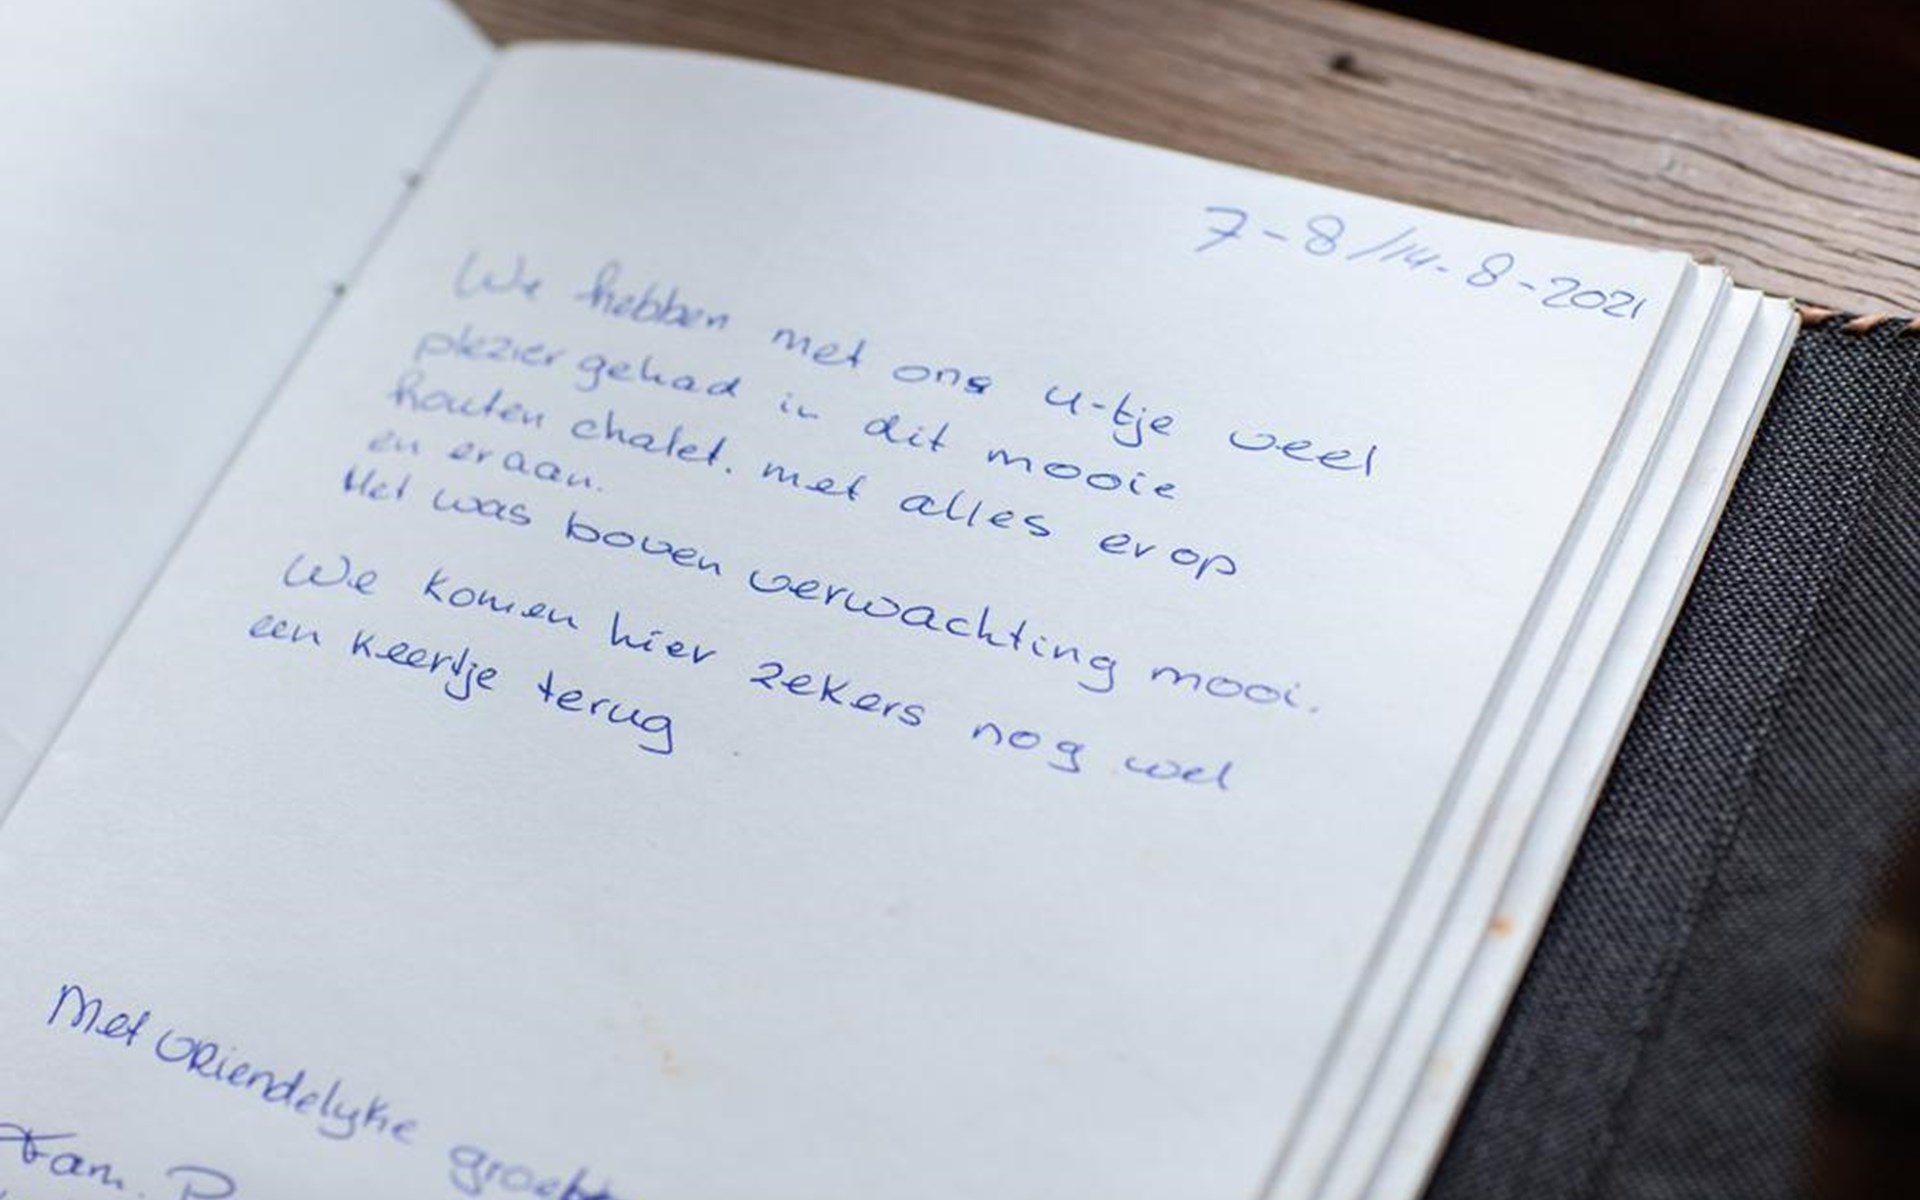 7-8/14-8-2021
We hebben met ons u-tje veel
plezier gehad in dit mooie
houten chalet. met alles erop
en eraan.
Het was boven verwachting mooi.
We komen hier zekers nog wel
een keertje terug
Met vriendelyke groeten
Fam.